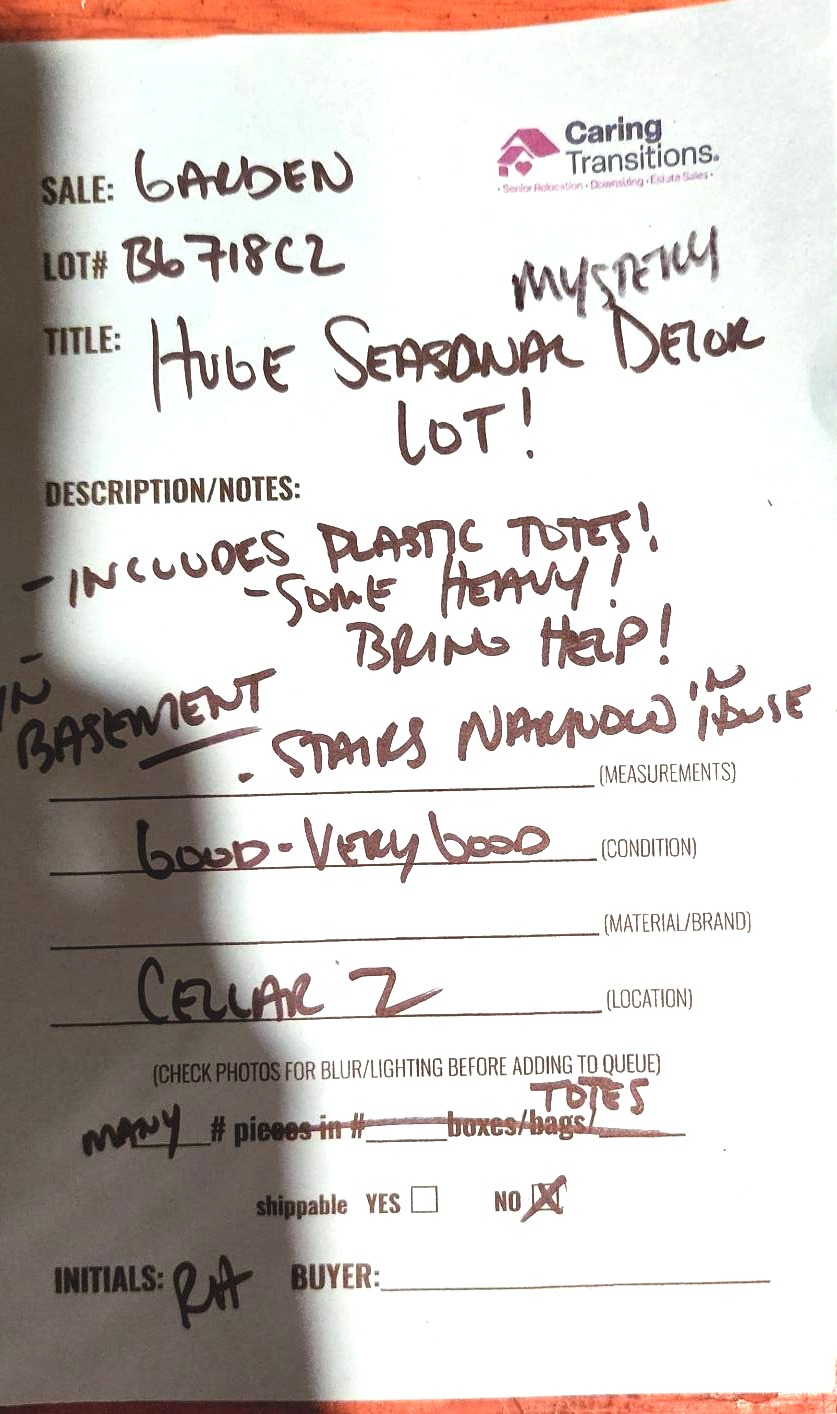 Caring
Transitions.
• Senior Relocation • Downsizing • Estate Sales •
SALE: GARDEN
LOT# B6718C2
MYSTERY
TITLE: HUGE SEASONAL DECOR
LOT!
DESCRIPTION/NOTES:
- INCLUDES PLASTIC TOTES!
- SOME HEAVY!
BRING HELP!
- IN
BASEMENT
- STAIRS NARROW IN HOUSE
(MEASUREMENTS)
GOOD - VERY GOOD (CONDITION)
(MATERIAL/BRAND)
CELLAR 2 (LOCATION)
(CHECK PHOTOS FOR BLUR/LIGHTING BEFORE ADDING TO QUEUE)
TOTES
MANY # pieces in # boxes/bags/
shippable YES NO X
INITIALS: RA BUYER: